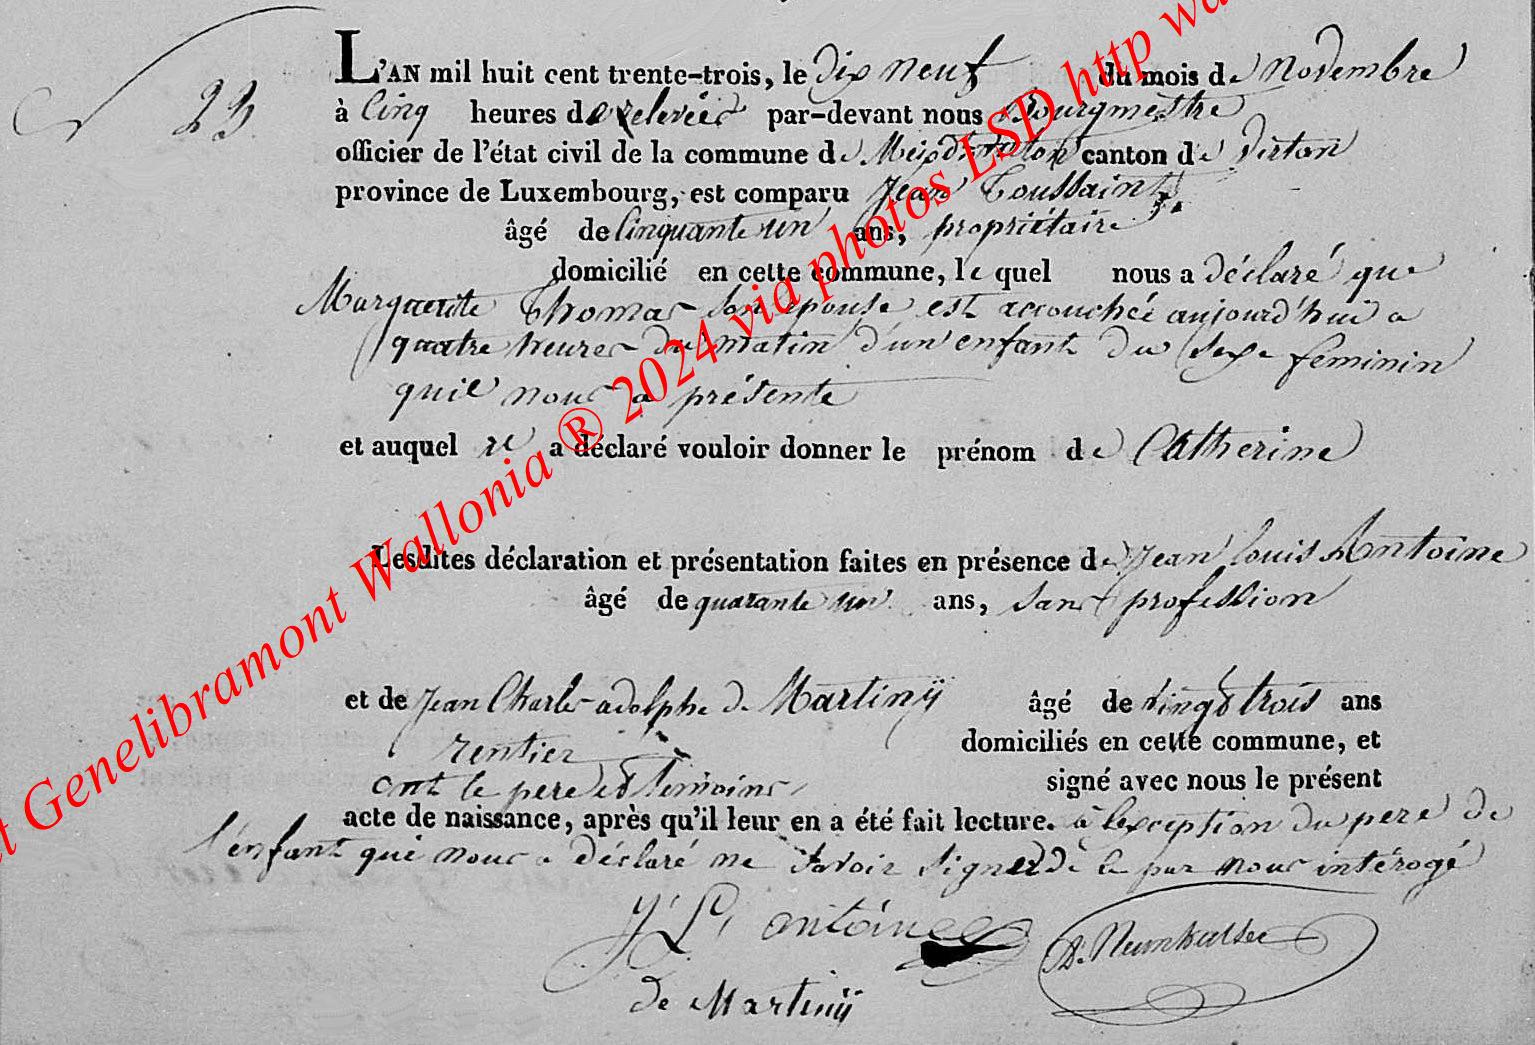 23.
L'AN mil huit cent trente-trois, le dix neuf du mois de Novembre
à Cinq heures de relevée par-devant nous Bourgmestre
officier de l'état civil de la commune de Meix dt Virton canton de Virton
province de Luxembourg, est comparu Jean Toussaint
âgé de Cinquante un ans, propriétaire
domicilié en cette commune, le quel nous a déclaré que
Marguerite Thomas son épouse est accouchée aujourd'hui a
quatre heures du matin d'un enfant du sexe feminin
quil nous a présenté
et auquel il a déclaré vouloir donner le prénom de Catherine
Lesdites déclaration et présentation faites en présence de Jean Louis Antoine
âgé de quarante un ans, sans profession
et de Jean Charles adolphe de Martinÿ âgé de vingt trois ans
rentier domiciliés en cette commune, et
ont le pere et temoins signé avec nous le présent
acte de naissance, après qu'il leur en a été fait lecture. à l'exception du pere de
l'enfant qui nous a déclaré ne savoir signer de ce par nous intérogé
J. L. antoine
de Martinÿ
t Genelibramont Wallonia ® 2024 via photos LSD http wa